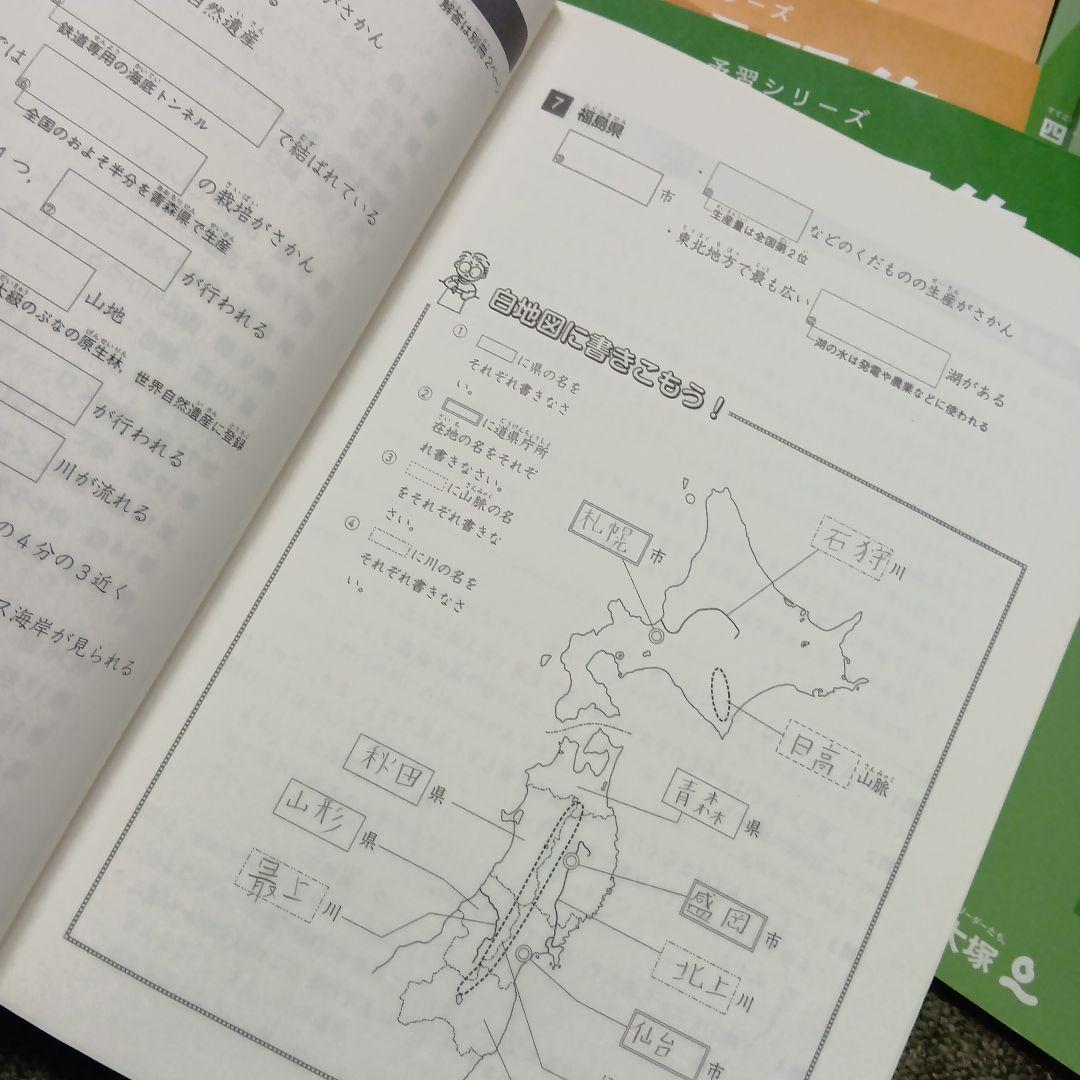 がさかん
自然遺産
解答は別冊2ペ
では
鉄道専用の海底トンネル
で結ばれている
⑥
の栽培がさかん
全国のおよそ半分を青森県で生産
4つ,
⑦
が行われる
山地
級のぶなの原生林, 世界自然遺産に登録
が行われる
川が流れる
の4分の3近く
ス海岸が見られる
7 福島県
市
・
などのくだものの生産がさかん
生産量は全国第2位
・東北地方で最も広い
湖がある
湖の水は発電や農業などに使われる
白地図に書きこもう!
① に県の名を
それぞれ書きなさ
い。
② に道県庁所
在地の名をそれぞ
れ書きなさい。
③ に山脈の名
をそれぞれ書きな
さい。
④ に川の名を
それぞれ書きなさ
い。
札幌市
石狩川
日高山脈
秋田県
青森県
山形県
最上川
盛岡市
北上川
仙台市
シリーズ
予習シリーズ
四
大塚